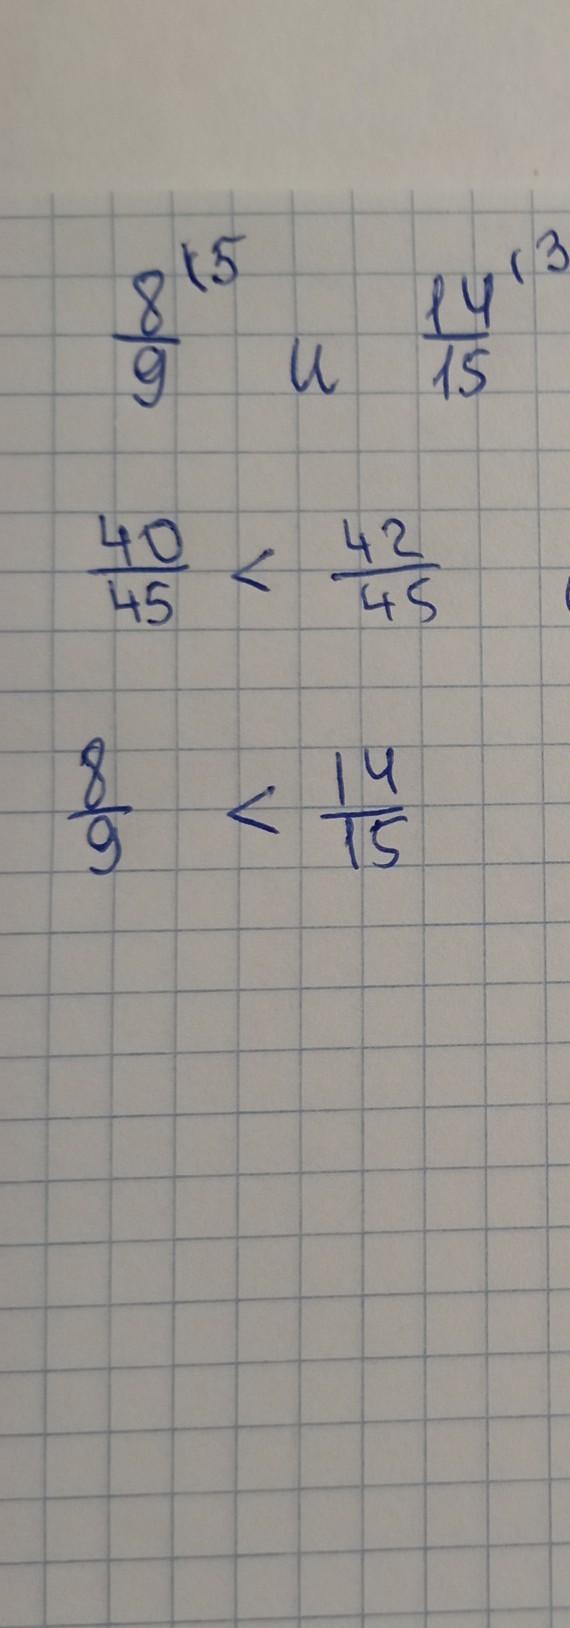 8/9 (5 и 14/15 (3
40/45 < 42/45
8/9 < 14/15